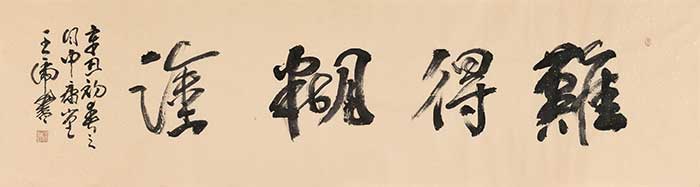 難得糊塗
辛丑初春之
月中康堂
王漪書